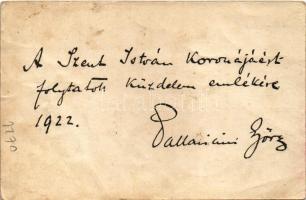 A Szent István Koronájáért
folytatott küzdelem emlékére
1922.
Pallavicini György